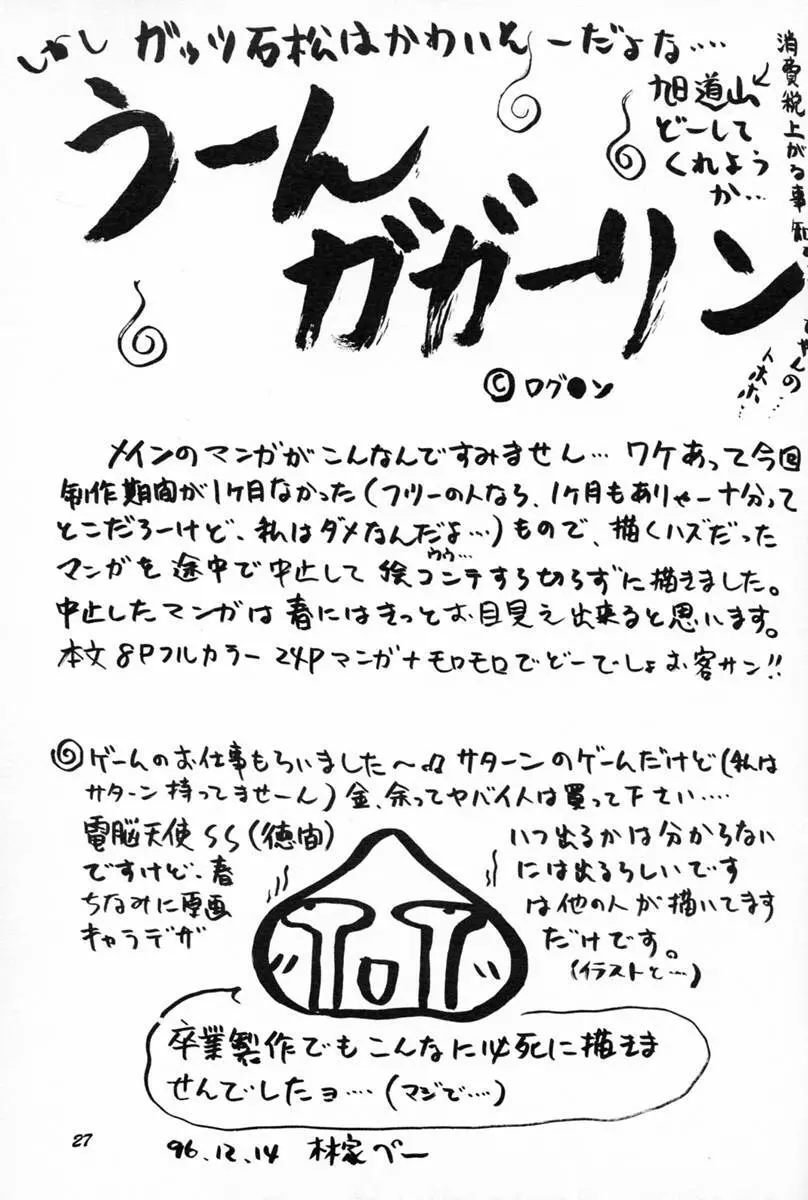 しかし ガッツ石松はかわいそーだよな‥‥
うーん
ガガーリン
旭道山
どーして
くれよう
か…
消費税上がる事
ちゃんの
トホホ…
©ログ●ン
メインのマンガがこんなんですみません… ワケあって今回
制作期間が1ケ月なかった(フツーの人なら、1ケ月もありゃー十分って
とこだろーけど、私はダメなんだよ…)もので、描くハズだった
ウゥ…
マンガを途中で中止して絵コンテすら切らずに描きました。
中止したマンガは春にはきっとお目見え出来ると思います。
本文8Pフルカラー24Pマンガ+モロモロでどーでしょお客サン!!
ゲームのお仕事もらいました〜♫ サターンのゲームだけど(私は
サターン持ってませーん)金、余ってヤバイ人は買って下さい‥‥
電脳天使SS(徳間) いつ出るかは分からない
ですけど、春 には出るらしいです
ちなみに原画 は他の人が描いてます
キャラデザ だけです。
(イラストと…)
卒業製作でもこんなに必死に描きま
せんでしたョ…(マジで…)
27
96.12.14 林家ペー